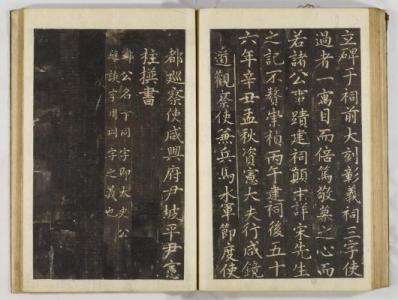 立碑于祠前大刻彰義祠三字使
過者一寓目而倍篤敬奠之心而
若諸公事蹟建祠顚末詳宋先生
之記不贅崇禎丙午建祠後五十
六年辛丑孟秋資憲大夫行咸鏡
道觀察使兼兵馬水軍節度使
都巡察使咸興府尹坡平尹憲
柱撰書
鄭公名下同字卽太史公
雖談字用同字之義也